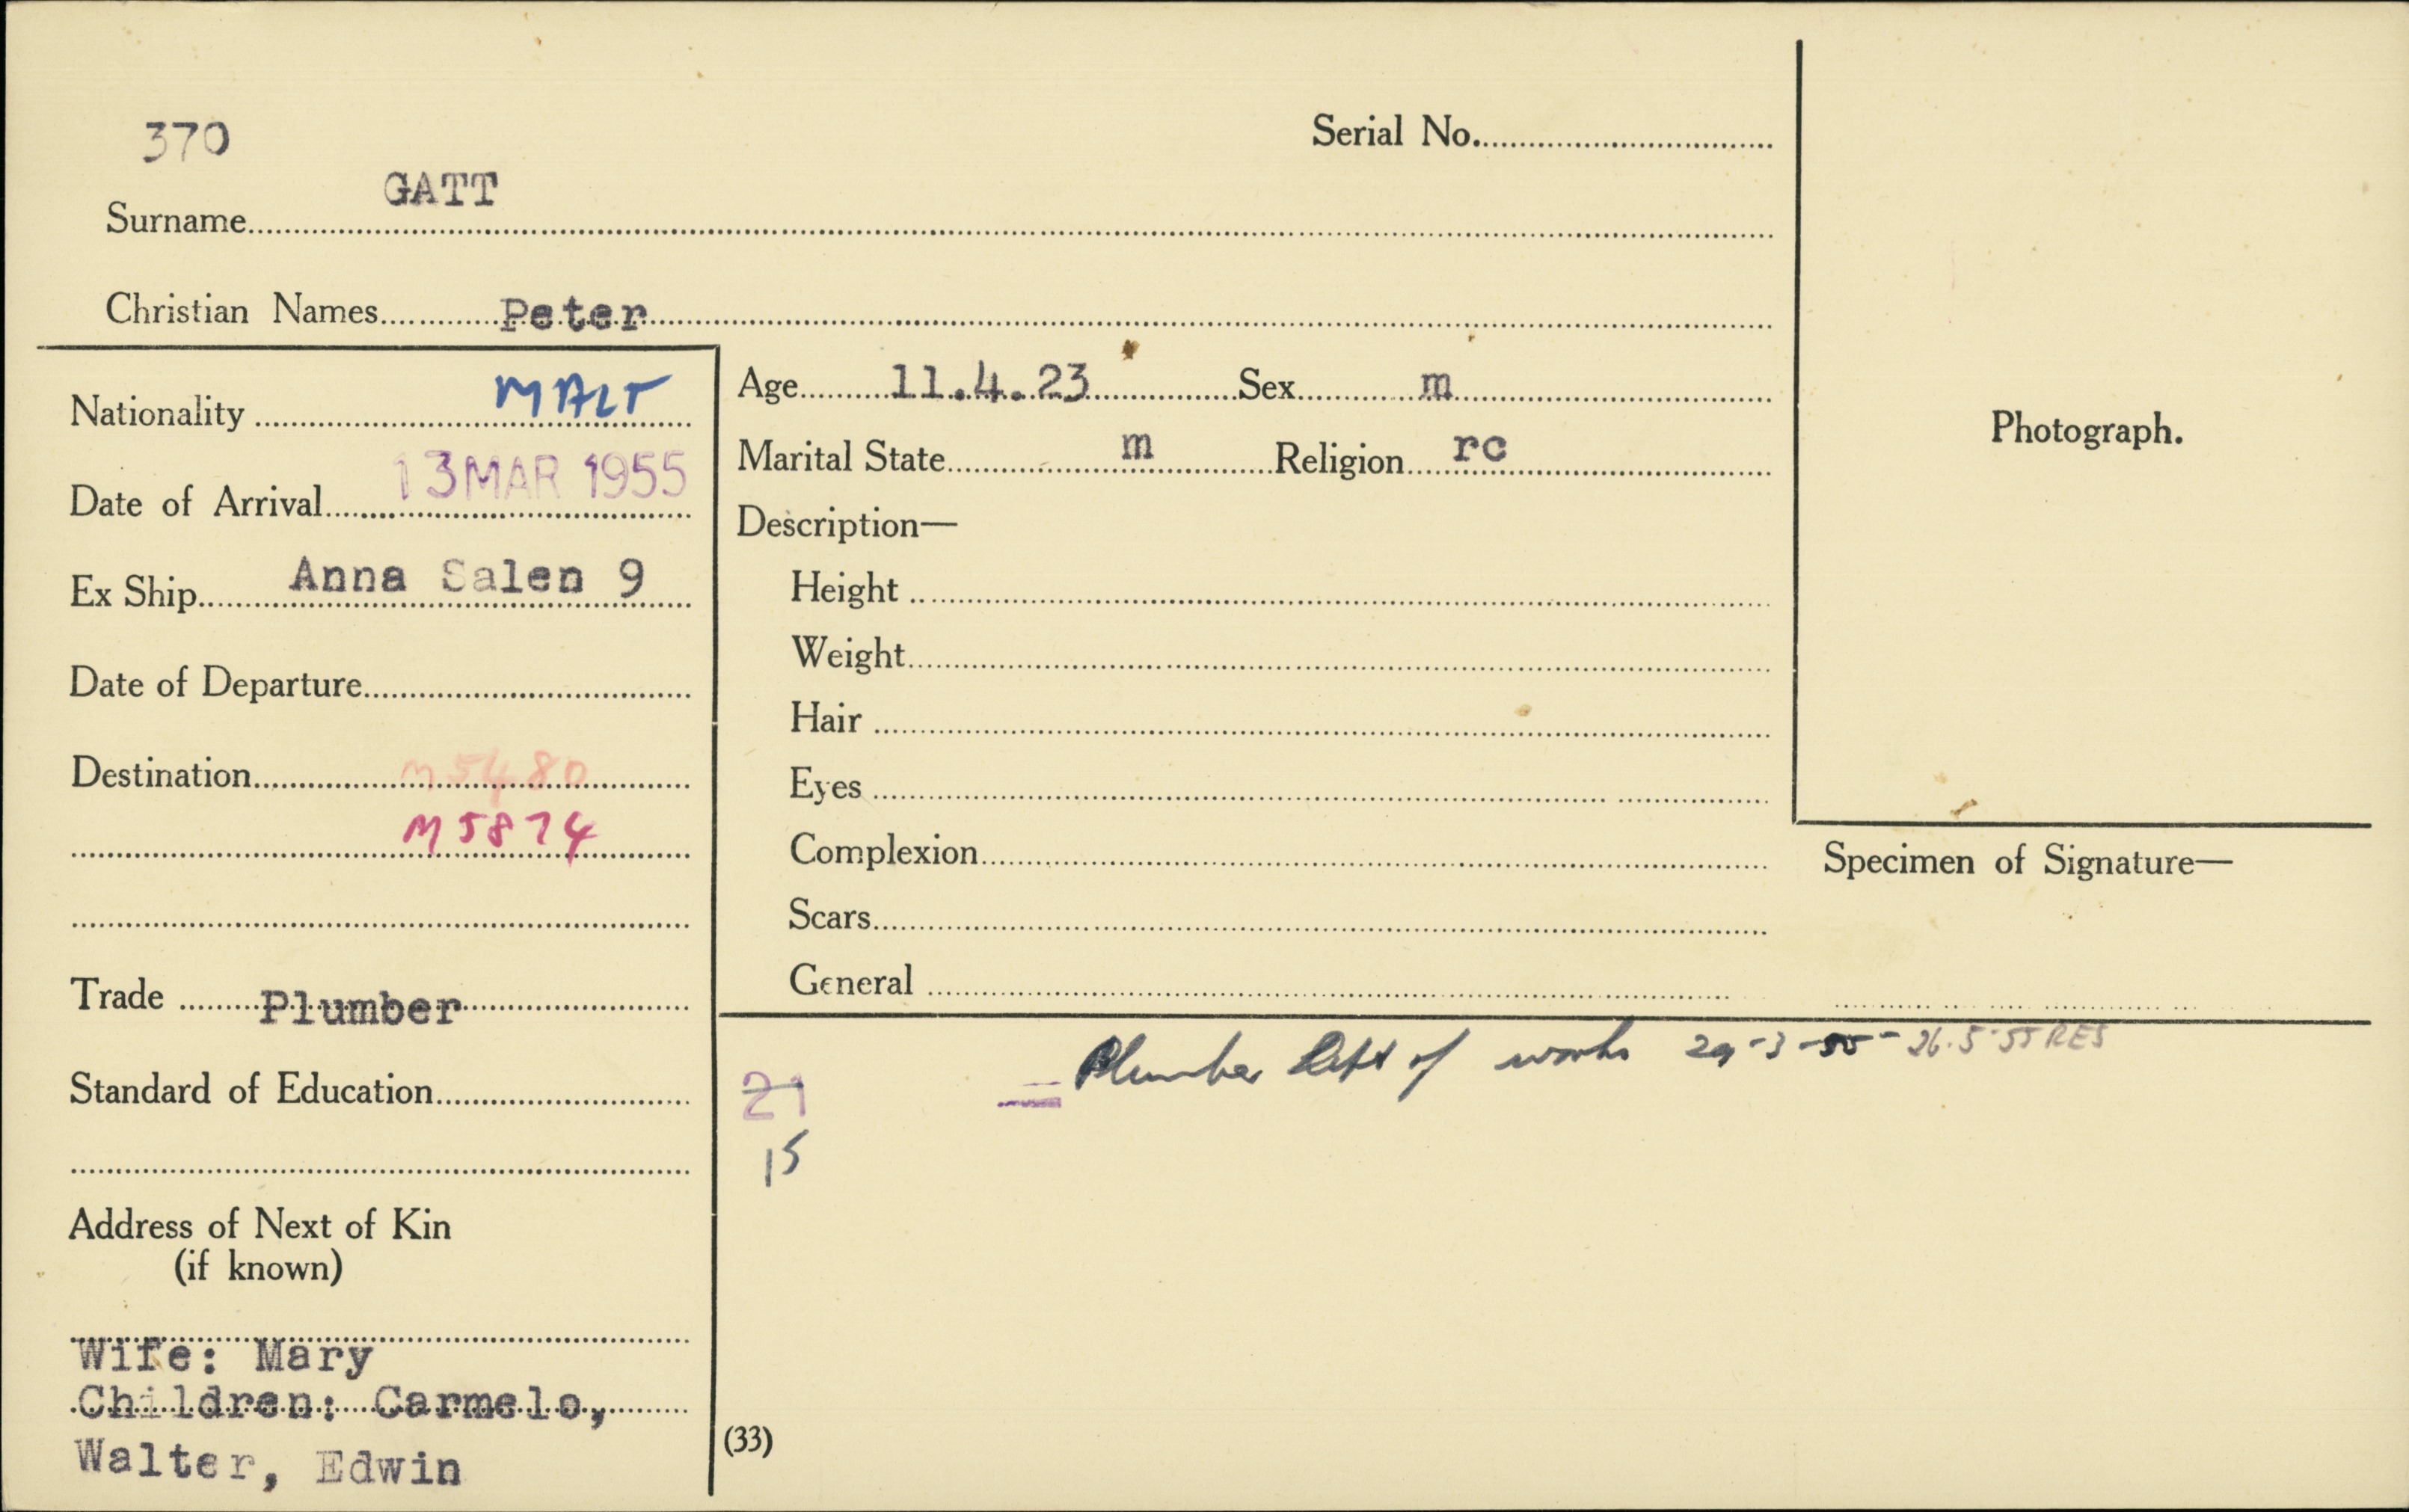 370
Serial No.
GATT
Surname
Christian Names Peter
Nationality MALT
Date of Arrival 13 MAR 1955
Ex Ship Anna Salen 9
Date of Departure
Destination M5480
M5874
Trade Plumber
Standard of Education
Address of Next of Kin
(if known)
Wife: Mary
Children: Carmelo,
Walter, Edwin
Age 11.4.23 Sex m
Marital State m Religion rc
Description—
Height
Weight
Hair
Eyes
Complexion
Scars
General
Photograph.
Specimen of Signature—
Plumber Dept of works 29-3-55- 26.5.55 RES
21
15
(33)